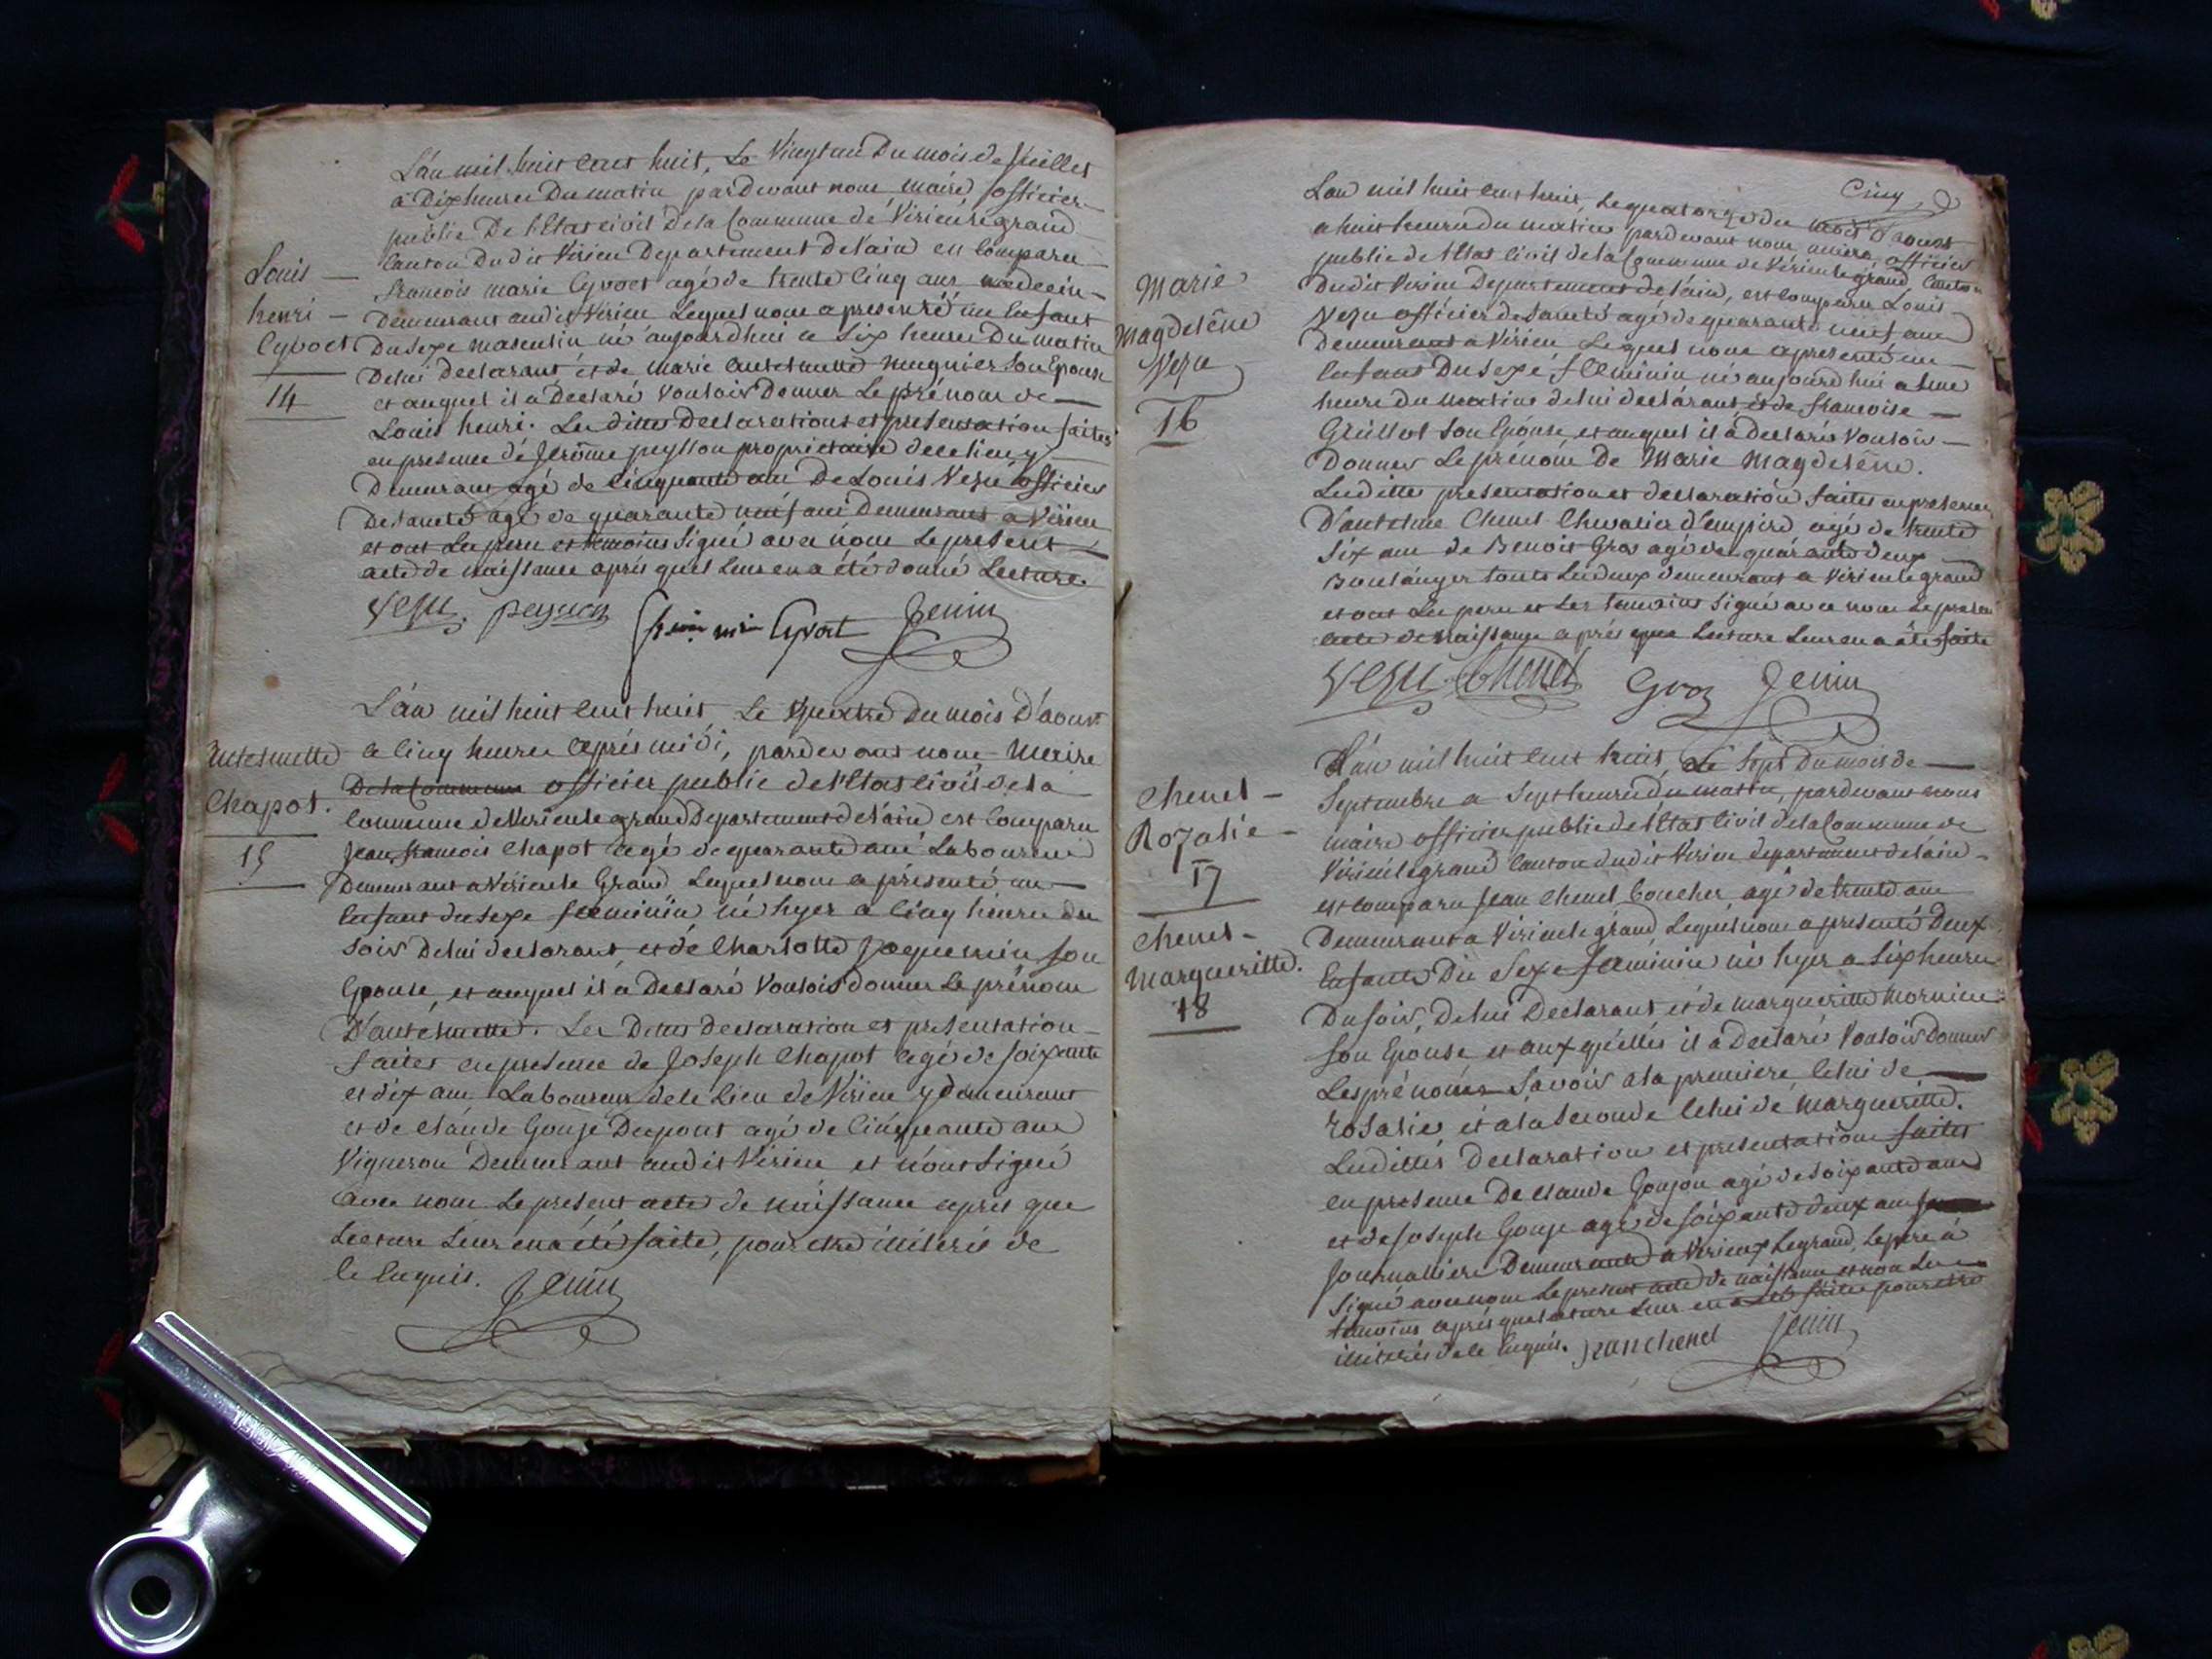 L'an mil huit cent huit, Le Vingt un Du mois de Juillet
a Dix heures Du matin pardevant nous maire officier
public De l'Etat civil De la Commune de Virieu le grand
Canton Dudit Virieu Departement de l'ain est Comparu
francois marie Cyvoct agé de trente Cinq ans medecin
Demeurant audit Virieu Lequel nous a presenté un Enfant
Du sexe masculin né aujourdhui a Six heures Du matin
De lui Declarant et de marie antelmette mugnier Son Epouse
et auquel il a Declaré Vouloir Donner Le prénom de
Louis henri. Les dittes Declarations et presentation faites
en presence de Jerôme peysson proprietaire de ce lieu y
Demeurant agé de Cinquante ans De Louis Vezu officier
De Santé agé de quarante neuf ans Demeurant a Virieu
et ont Les pere et temoins Signé avec nous Le présent
acte de naissance après qu'il leur en a été donné Lecture.
Louis
henri
Cyvoct
14
Vezu peysson Cyvoct Jenin
L'an mil huit cent huit, Le quatre Du mois D'aoust
a Cinq heures après midi, pardevant nous Maire
De la Commune officier public de l'Etat civil de la
Commune de Virieu le grand Departement de l'ain est Comparu
Jean francois Chapot agé de quarante ans Laboureur
Demeurant a Virieu le Grand Lequel nous a présenté un
Enfant du sexe féminin né hyer a Cinq heures du
Soir De lui declarant, et de Charlotte Jacquemin Son
Epouse, et auquel il a Declaré Vouloir donner Le prénom
D'antelmette. Les Dittes declaration et presentation
faites en presence de Joseph Chapot agé de soixante
et dix ans Laboureur de ce Lieu de Virieu y demeurant
et de Claude Gouje Decpont agé de Cinquante ans
Vigneron Demeurant audit Virieu et n'ont Signé
avec nous Le present acte de naissance après que
Lecture Leur en a été faite, pour être de
ce Enquis. Jenin
Antelmette
Chapot.
15
Cinq
L'an mil huit cent huit, Le quatorze du mois d'aoust
a huit heures du matin pardevant nous maire officier
public de l'Etat Civil de la Commune de Virieu le grand Canton
Dudit Virieu Departement de l'ain, est Comparu Louis
Vezu officier de Santé agé de quarante neuf ans
Demeurant a Virieu Lequel nous a presenté un
Enfant Du Sexe féminin né aujourdhui a une
heure du matin de lui declarant et de francoise
Grillet Son Epouse et auquel il a declaré Vouloir
Donner Le prénom De Marie Magdelêne.
Lesdittes presentation et declaration faites en presence
D'antelme Chenel Chevalier d'empire agé de trente
Six ans de Benoit Gros agé de quarante deux
Boulanger touts Les deux demeurant a Virieu le grand
et ont Les pere et Les temoins Signé avec nous Le present
acte de naissance après que Lecture Leur en a été faite
Marie
Magdelêne
Vezu
16
Vezu Chenel Groz Jenin
L'an mil huit cent huit, Le Sept Du mois de
Septembre a Sept heures du matin, pardevant nous
maire officier public de l'Etat Civil de la Commune de
Virieu le grand Canton dudit Virieu departement de l'ain
est Comparu Jean Chenel Boucher, agé de trente ans
Demeurant a Virieu le grand Lequel nous a presenté Deux
Enfants Du Sexe féminin né hyer a Six heures
Du Soir, De lui Declarant et de margueritte Mornieu
Son Epouse et auxquelles il a Declaré Vouloir Donner
Les prénoms Savoir a la premiere Celui de
rosalie, et a la Seconde Celui de Margueritte.
Lesdittes declaration et presentation faites
en presence De Claude Goujon agé de soixante ans
et de Joseph Gouje agé de soixante deux ans
Journalliers Demeurant a Virieux Legrand, Le pere a
Signé avec nous Le present acte de naissance et non Les
temoins après que Lecture Leur en a été faite pour être
de ce Enquis. Jean Chenel Jenin
Chenel
Rozalie
17
Chenel
margueritte.
18